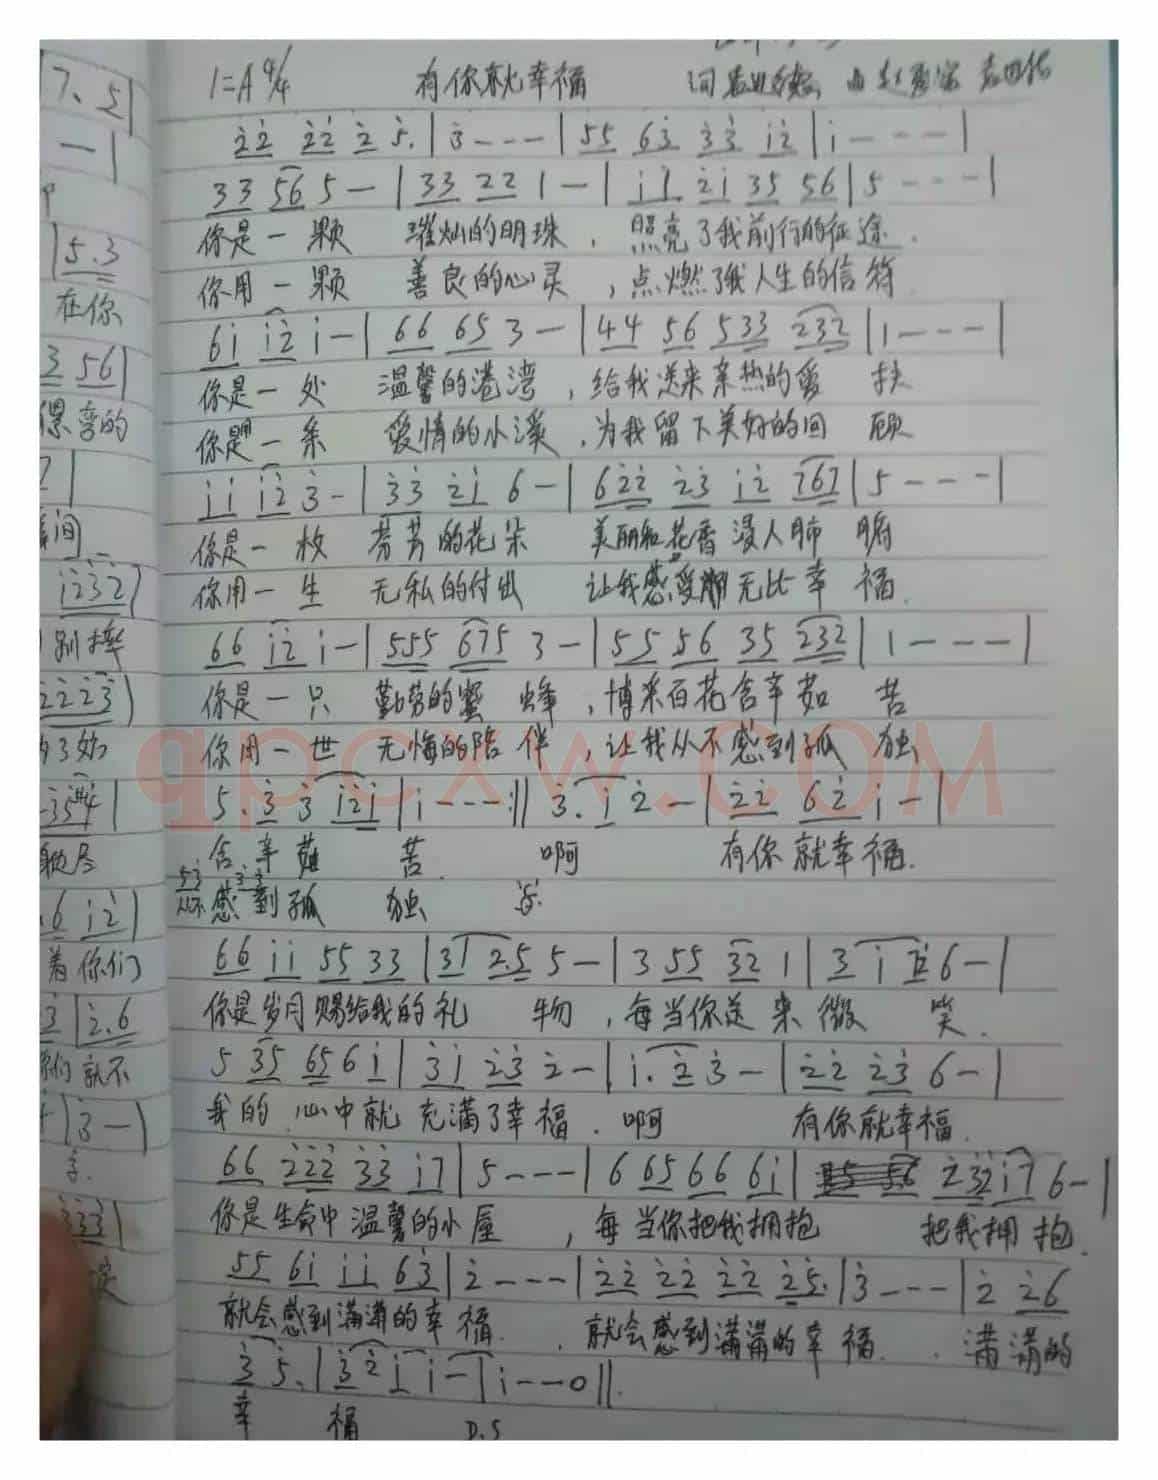 1=A 4/4 有你就幸福 词 曲
2̇2̇ 2̇2̇ 2̇ 5. | 3̇ - - - | 55 63̇ 3̇3̇ 1̇2̇ | 1̇ - - - |
33 56 5 - | 33 22 1 - | 1̇1̇ 2̇1̇ 35 56 | 5 - - - |
你是一颗 璀灿的明珠，照亮了我前行的征途．
你用一颗 善良的心灵，点燃了我人生的信符
61̇ 1̇2̇ 1̇ - | 66 65 3 - | 44 56 533 232 | 1 - - - |
你是一处 温馨的港湾，给我送来亲热的爱 扶
你是一条 爱情的小溪，为我留下美好的回 顾
1̇1̇ 1̇2̇ 3̇ - | 3̇3̇ 2̇1̇ 6 - | 62̇2̇ 2̇3̇ 1̇2̇ 767 | 5 - - - |
你是一枚 芬芳的花朵 美丽和花香浸人肺 腑
你用一生 无私的付出 让我感受 无比幸 福．
66 1̇2̇ 1̇ - | 555 675 3 - | 55 56 35 232 | 1 - - - |
你是一只 勤劳的蜜 蜂，博采百花含辛茹 苦
你用一世 无悔的陪 伴，让我从不感到孤 独
qpcxw.com
5. 3̇ 3̇ 1̇2̇1̇ | 1̇ - - - :|| 3̇. 1̇ 2̇ - | 2̇2̇ 62̇ 1̇ - |
含辛茹 苦． 啊 有你就幸福．
从不感到孤 独
66 1̇1̇ 55 33 | 31 2.5 5 - | 3 55 32 1 | 3 1̇ 6 - |
你是岁月赐给我的礼 物，每当你送来微 笑．
5 35 65 6 1̇ | 3̇1̇ 2̇3̇ 2̇ - | 1̇. 2̇ 3̇ - | 2̇2̇ 2̇3̇ 6 - |
我的心中就充满了幸福．啊 有你就幸福．
66 2̇2̇2̇ 3̇3̇ 1̇7 | 5 - - - | 6 65 66 61̇ | 2̇ 3̇2̇ 1̇7 6 - |
你是生命中温馨的小屋 ，每当你把我拥抱 把我拥 抱．
55 61̇ 1̇1̇ 63̇ | 2̇ - - - | 2̇2̇ 2̇2̇ 2̇2̇ 2̇5. | 3̇ - - - | 2̇ 2̇6
就会感到满满的幸 福．．就会感到满满的幸 福．．满满的
3̇ 5. | 3̇2̇ 1̇ 1̇ - | 1̇ - - 0 ||.
幸 福 D.S
7. 5 |
- |
| 5.3
在你
3 56 |
弯的
7 |
间
1̇2̇3̇2̇ |
别
2̇2̇2̇3̇
了
尽
.6 1̇2̇ |
着你们
3̇ | 2̇.6
们就不
| 3̇ - |
3̇3̇3̇ |